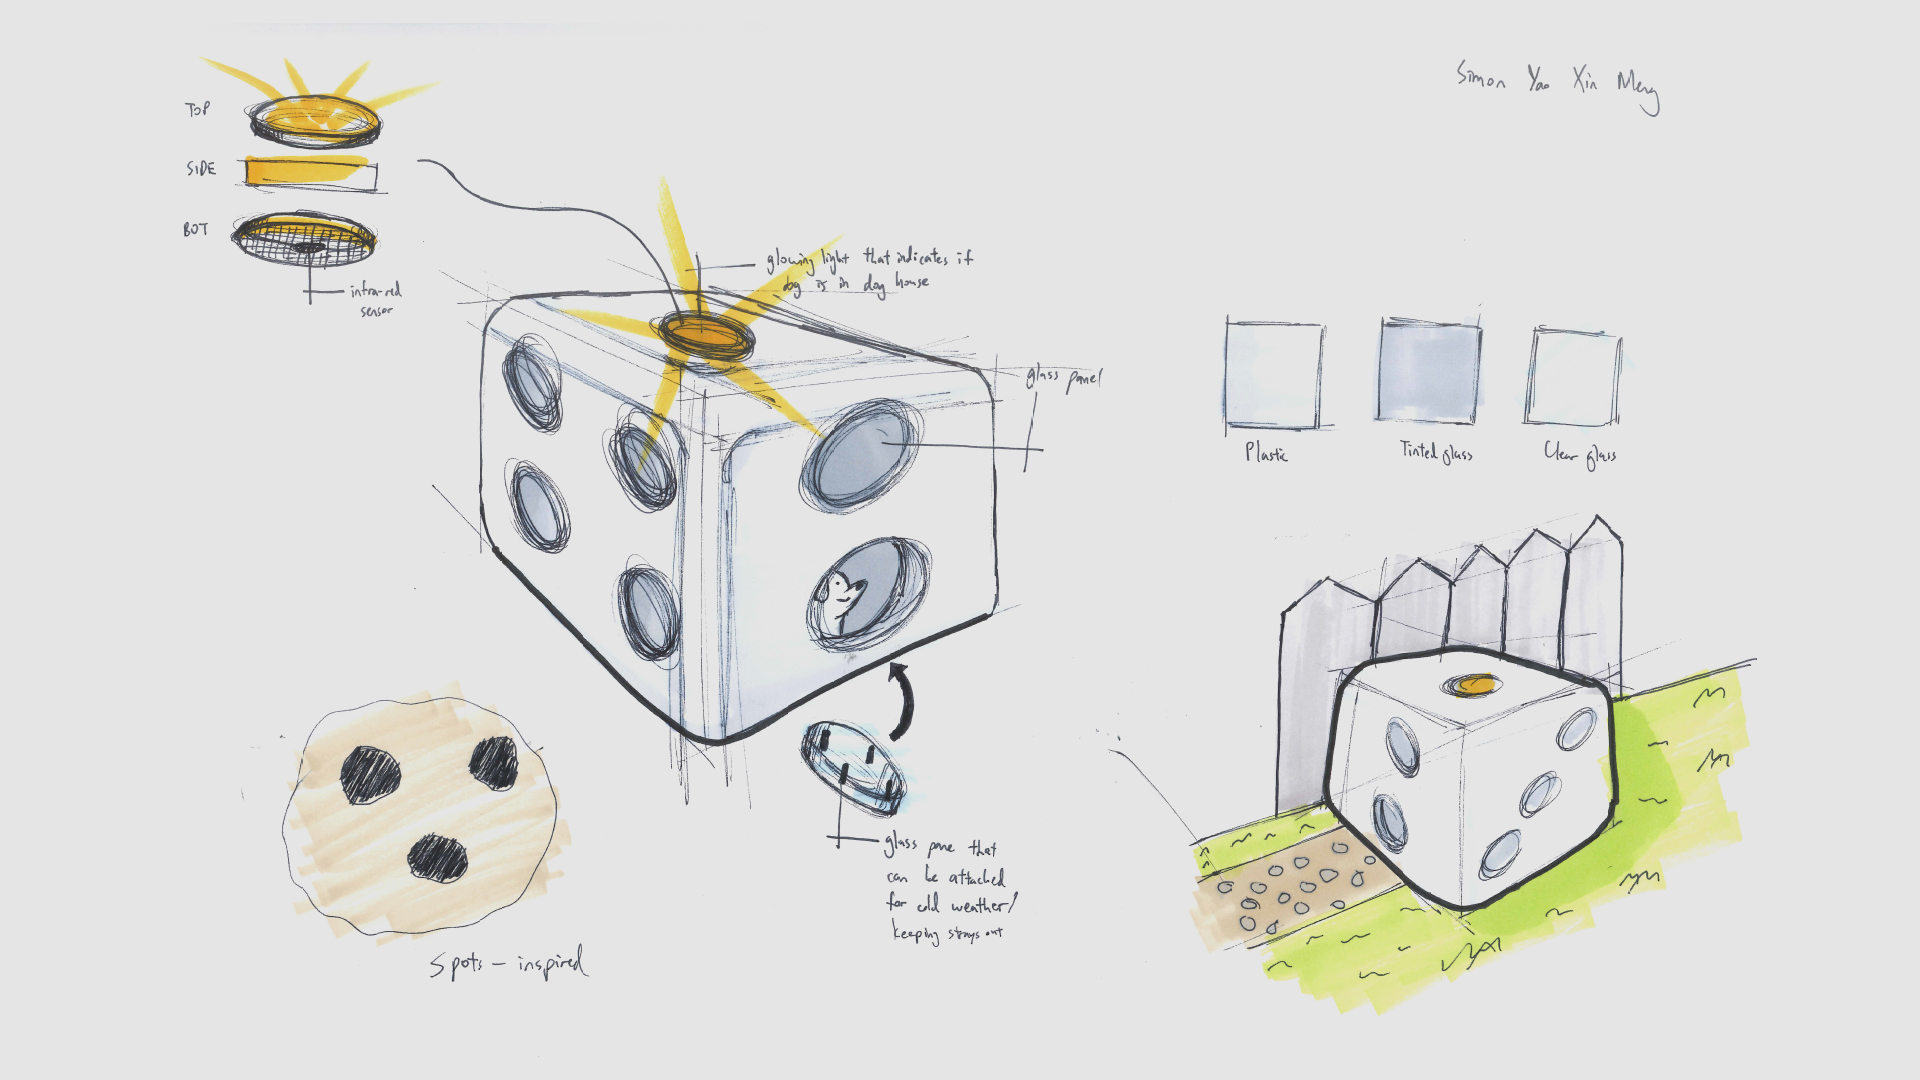 Simon Yao Xin Meng
TOP
SIDE
BOT
infra-red
sensor
glowing light that indicates if
dog is in dog house
glass panel
Plastic
Tinted glass
Clear glass
glass pane that
can be attached
for cold weather/
keeping strays out
Spots - inspired